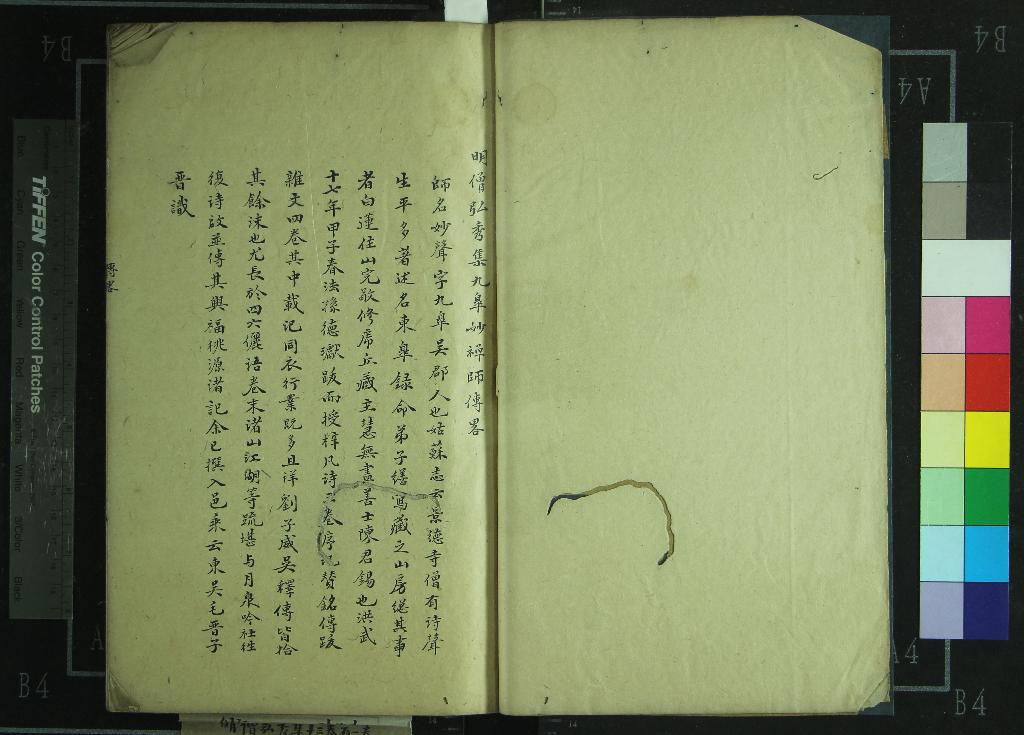 明僧弘秀集九皐妙禪師傳畧
師名妙聲字九皐吳郡人也姑蘇志云景德寺僧有诗聲
生平多著述名東皐録命弟子繕寫藏之山房継其事
者白蓮住山完敬修席丘藏主慧無盡善士陳君錫也洪武
十七年甲子春法孫德瓛跋而授梓凡诗三卷序記贊銘傳跋
雜文四卷其中載记同衣行業既多且详劉子威吳釋傳皆拾
其餘沫也尤長於四六儷语卷末诸山江湖等疏堪与月泉吟社往
復诗啟並傳其興福桃源诸記余已撰入邑乘云東吳毛晉子
晋識
傳畧
TIFFEN Color Control Patches
Blue
Cyan
Green
Yellow
Red
Magenta
White
3/Color
Black
B4
B4
A4
A4
B4
B4